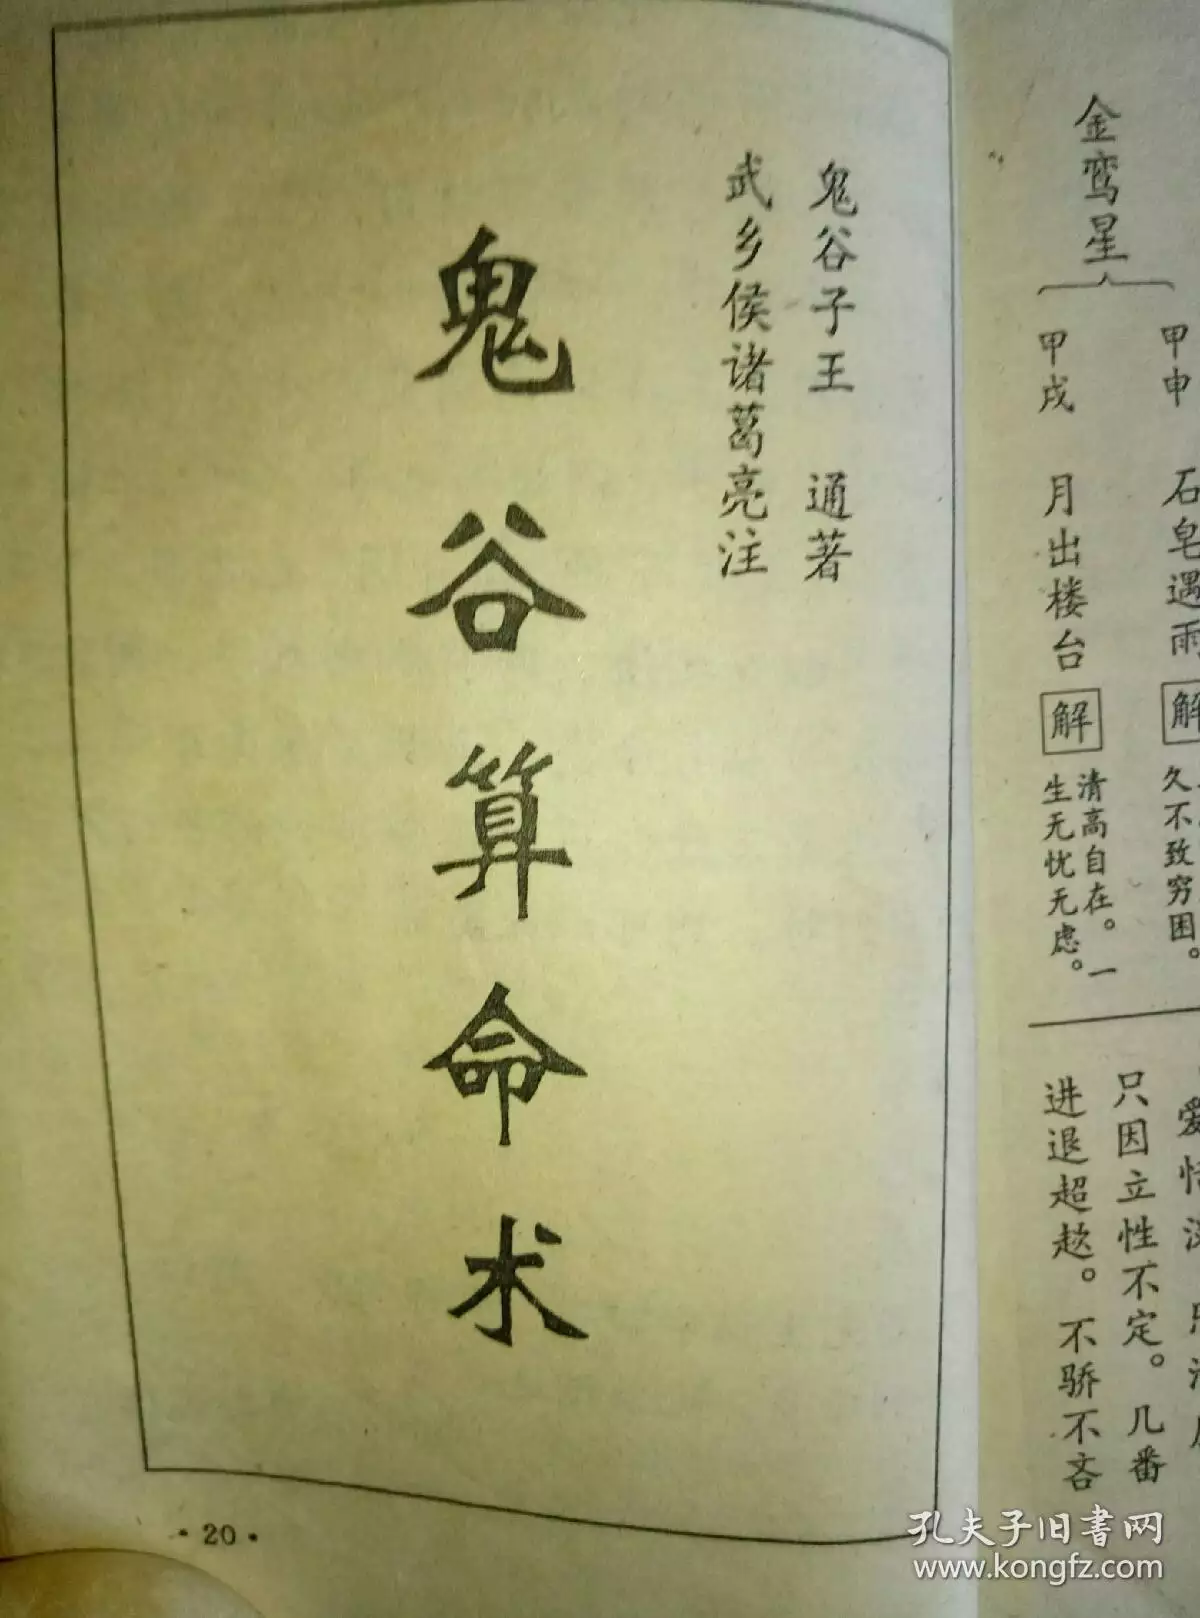 鬼谷子王 通著
武乡侯诸葛亮注
鬼谷算命术
·20·
金鸾星
甲申 石皂遇雨
解
久不致穷困。
甲戌 月出楼台
解
清高自在。一
生无忧无虑。
只因立性不定。几番
进退超趑。不骄不吝
孔夫子旧书网
www.kongfz.com